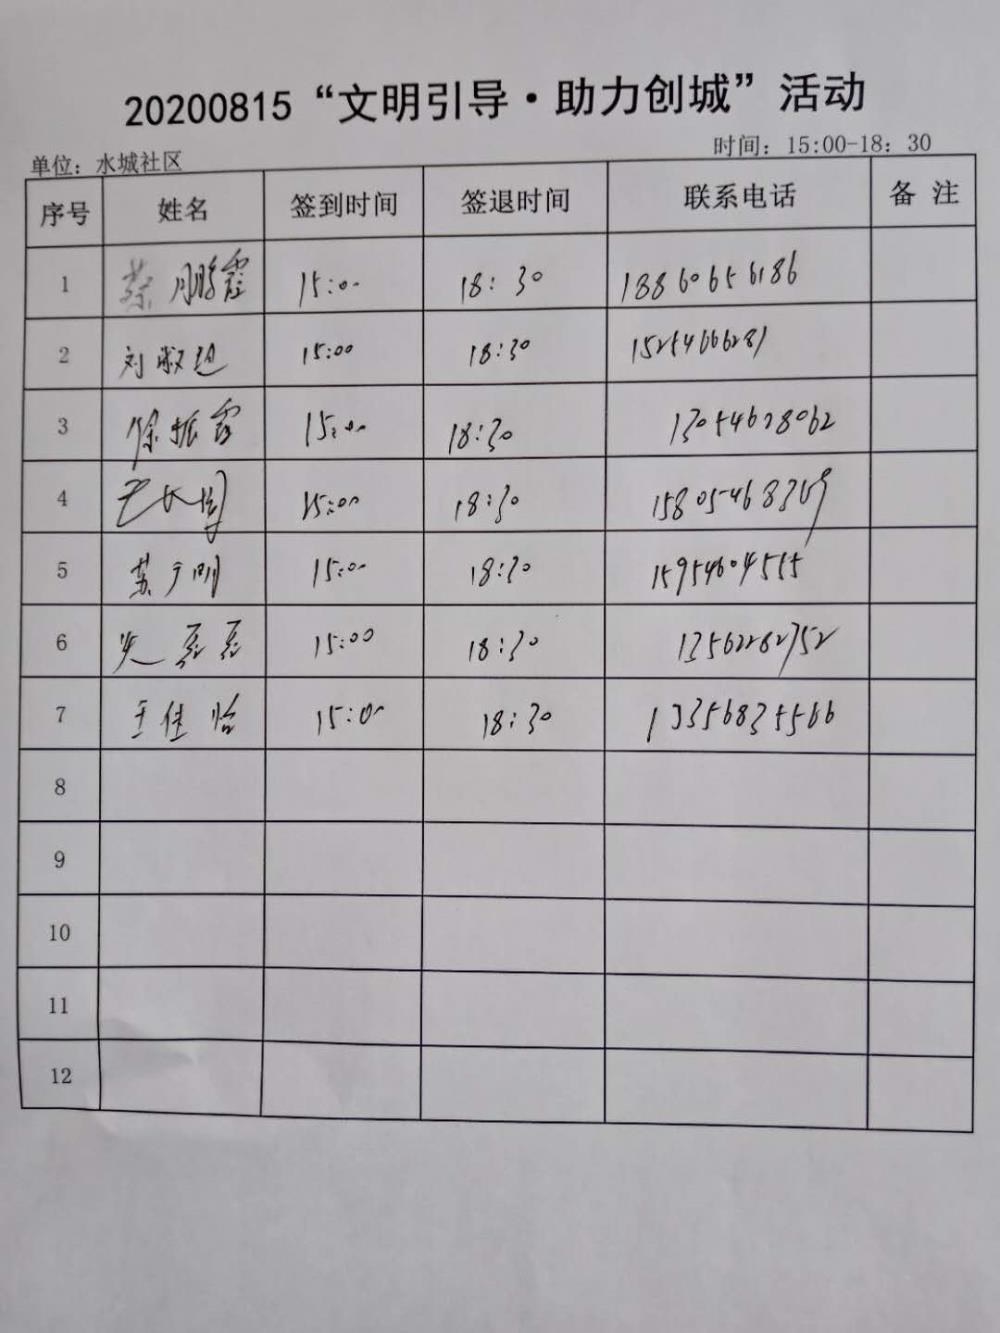 20200815“文明引导·助力创城”活动
单位：水城社区 时间：15:00-18：30
序号 姓名 签到时间 签退时间 联系电话 备 注
1 蔡鹏霞 15:00 18:30 18860656186
2 刘淑 15:00 18:30 15254666281
3 徐振霞 15:00 18:30 13054678062
4 15:00 18:30
5 苏广明 15:00 18:30 15954604555
6 磊磊 15:00 18:30 13562282752
7 王佳怡 15:00 18:30 13356835566
8
9
10
11
12